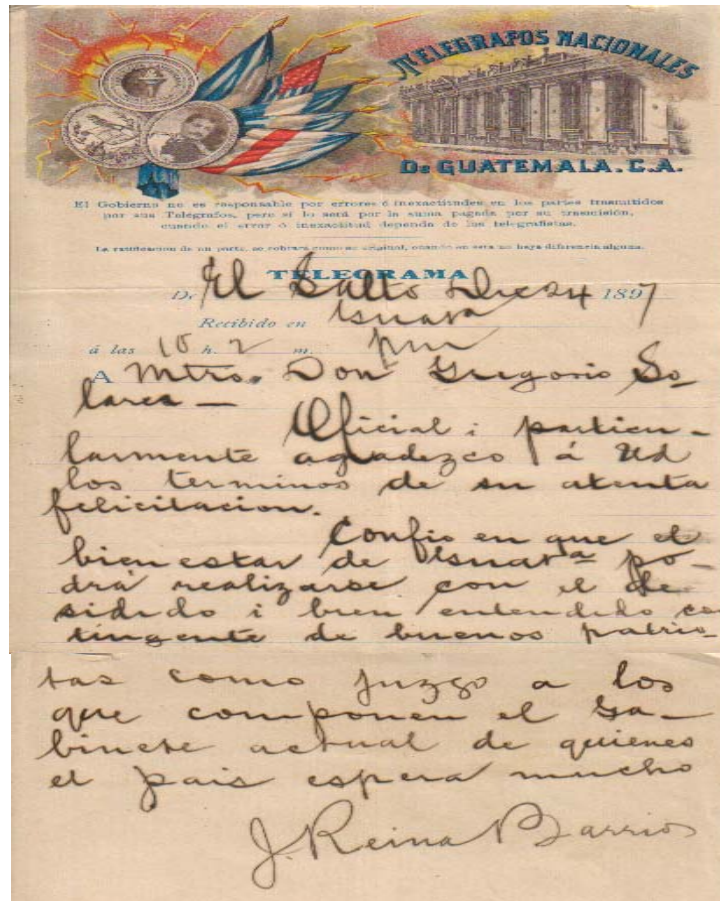 TELEGRAFOS NACIONALES
DE GUATEMALA. C.A.
El Gobierno no es responsable por errores ó inexactitudes en los partes trasmitidos
por sus Telégrafos, pero sí lo será por la suma pagada por su trasmisión,
cuando el error ó inexactitud dependa de los telegrafistas.
La ratificación de un parte, se cobrará como su original, cuando en esta no haya diferencia alguna.
TELEGRAMA
De El Salto Dic 24 1897
Recibido en Guata
á las 10 h. 2 m. pm
A Mtro. Don Gregorio So-
lares —
Oficial i particu-
larmente agradezco á Ud
los terminos de su atenta
felicitacion.
Confio en que el
bien estar de Guata po-
drá realizarse con el de
sidido i bien entendido co
tingente de buenos patrio-
tas como juzgo a los
que componen el Ga-
binete actual de quienes
el pais espera mucho
J. Reina Barrios